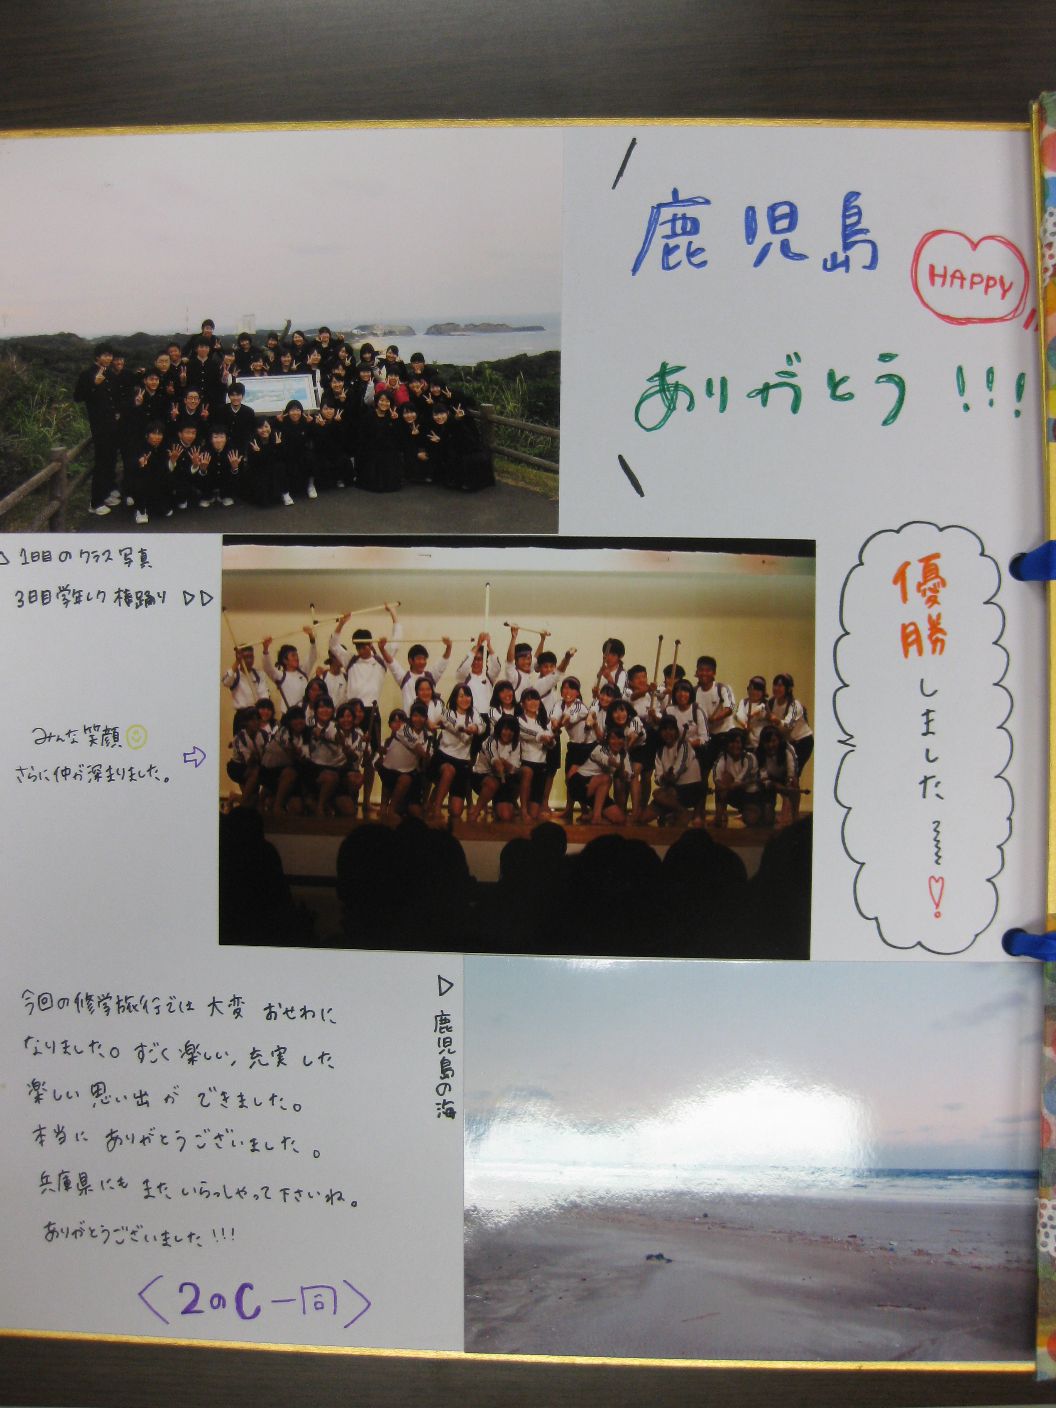 鹿児島
HAPPY
ありがとう!!!
▷ 1日目のクラス写真
3日目学年レク 棒踊り ▷▷
優勝しました〜♡
みんな笑顔
さらに仲が深まりました。
▷ 鹿児島の海
今回の修学旅行では 大変 おせわに
なりました。すごく楽しい、充実した
楽しい思い出ができました。
本当に ありがとうございました。
兵庫県にも また いらっしゃって下さいね。
ありがとうございました!!!
〈2のC一同〉